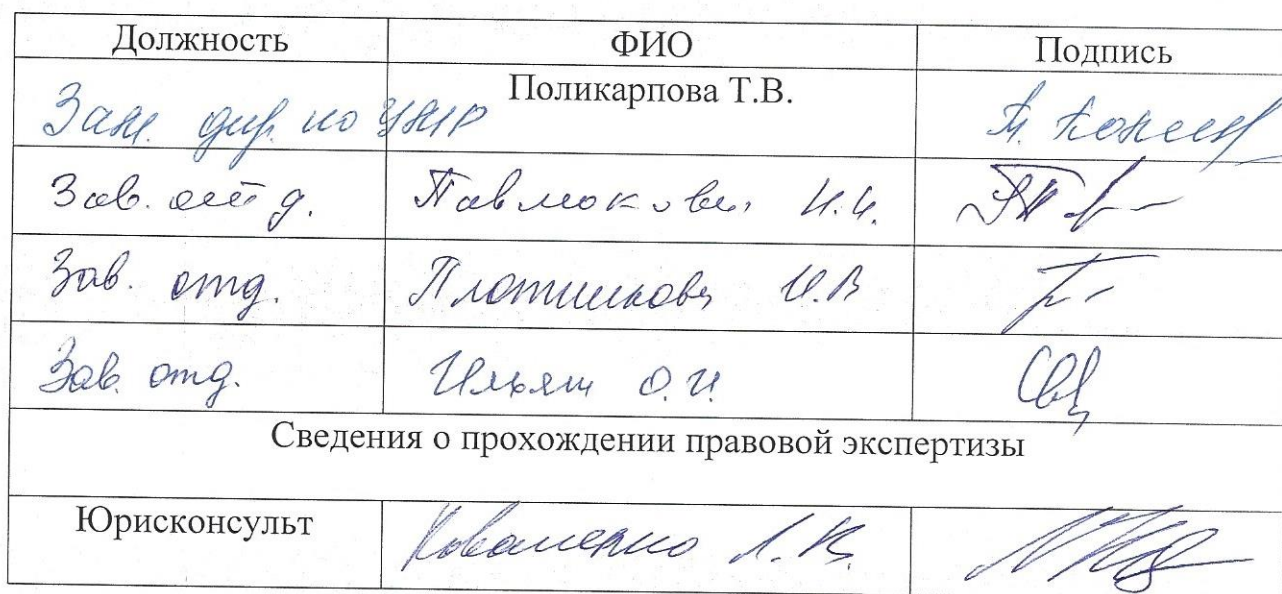 Должность ФИО Подпись
Поликарпова Т.В.
Зам. дир. по УМР
Зав. отд. Павлюкова И.И.
Зав. отд. Плотникова И.В
Зав. отд. Ильяш О.И.
Сведения о прохождении правовой экспертизы
Юрисконсульт Коваленко Л.В.